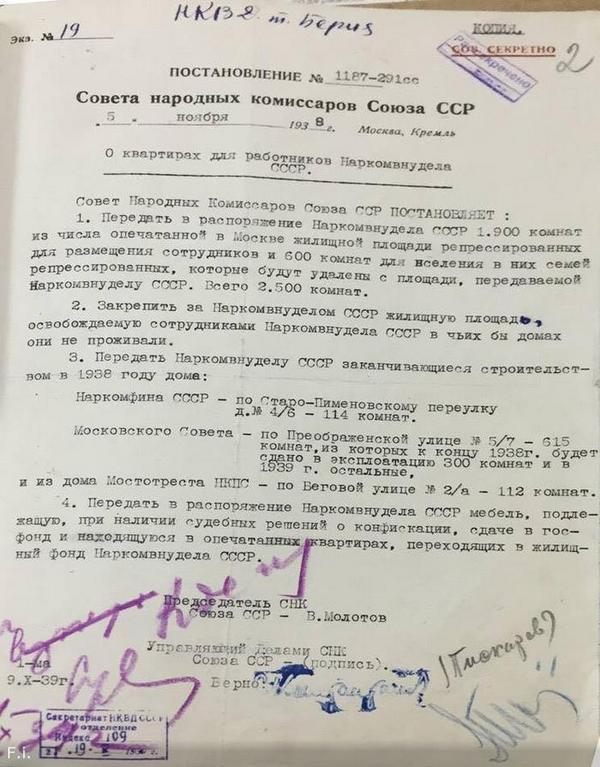 Экз. № 19
НКВД т. Берия
КОПИЯ.
СОВ. СЕКРЕТНО
Рассекречено
2
ПОСТАНОВЛЕНИЕ № 1187-291сс
Совета народных комиссаров Союза ССР
„ 5 „ ноября 1938 г. Москва, Кремль
О квартирах для работников Наркомвнудела
СССР.
Совет Народных Комиссаров Союза ССР ПОСТАНОВЛЯЕТ :
1. Передать в распоряжение Наркомвнудела СССР 1.900 комнат
из числа опечатанной в Москве жилищной площади репрессированных
для размещения сотрудников и 600 комнат для вселения в них семей
репрессированных, которые будут удалены с площади, передаваемой
Наркомвнуделу СССР. Всего 2.500 комнат.
2. Закрепить за Наркомвнуделом СССР жилищную площадь,
освобождаемую сотрудниками Наркомвнудела СССР в чьих бы домах
они не проживали.
3. Передать Наркомвнуделу СССР заканчивающиеся строительст-
вом в 1938 году дома:
Наркомфина СССР – по Старо-Пименовскому переулку
д.№ 4/6 – 114 комнат.
Московского Совета – по Преображенской улице № 5/7 – 615
комнат,из которых к концу 1938г. будет
сдано в эксплоатацию 300 комнат и в
1939 г. остальные,
и из дома Мостотреста НКПС – по Беговой улице № 2/а – 112 комнат.
4. Передать в распоряжение Наркомвнудела СССР мебель, подле-
жащую, при наличии судебных решений о конфискации, сдаче в гос-
фонд и находящуюся в опечатанных квартирах, переходящих в жилищ-
ный фонд Наркомвнудела СССР.
Председатель СНК
Союза ССР – В.Молотов
Управляющий Делами СНК
Союза ССР – (подпись).
1-ма
9.X-39г.
Верно:
(Пискарев)
Секретариат НКВД СССР
отделение
Индекс 109
19
F.i.